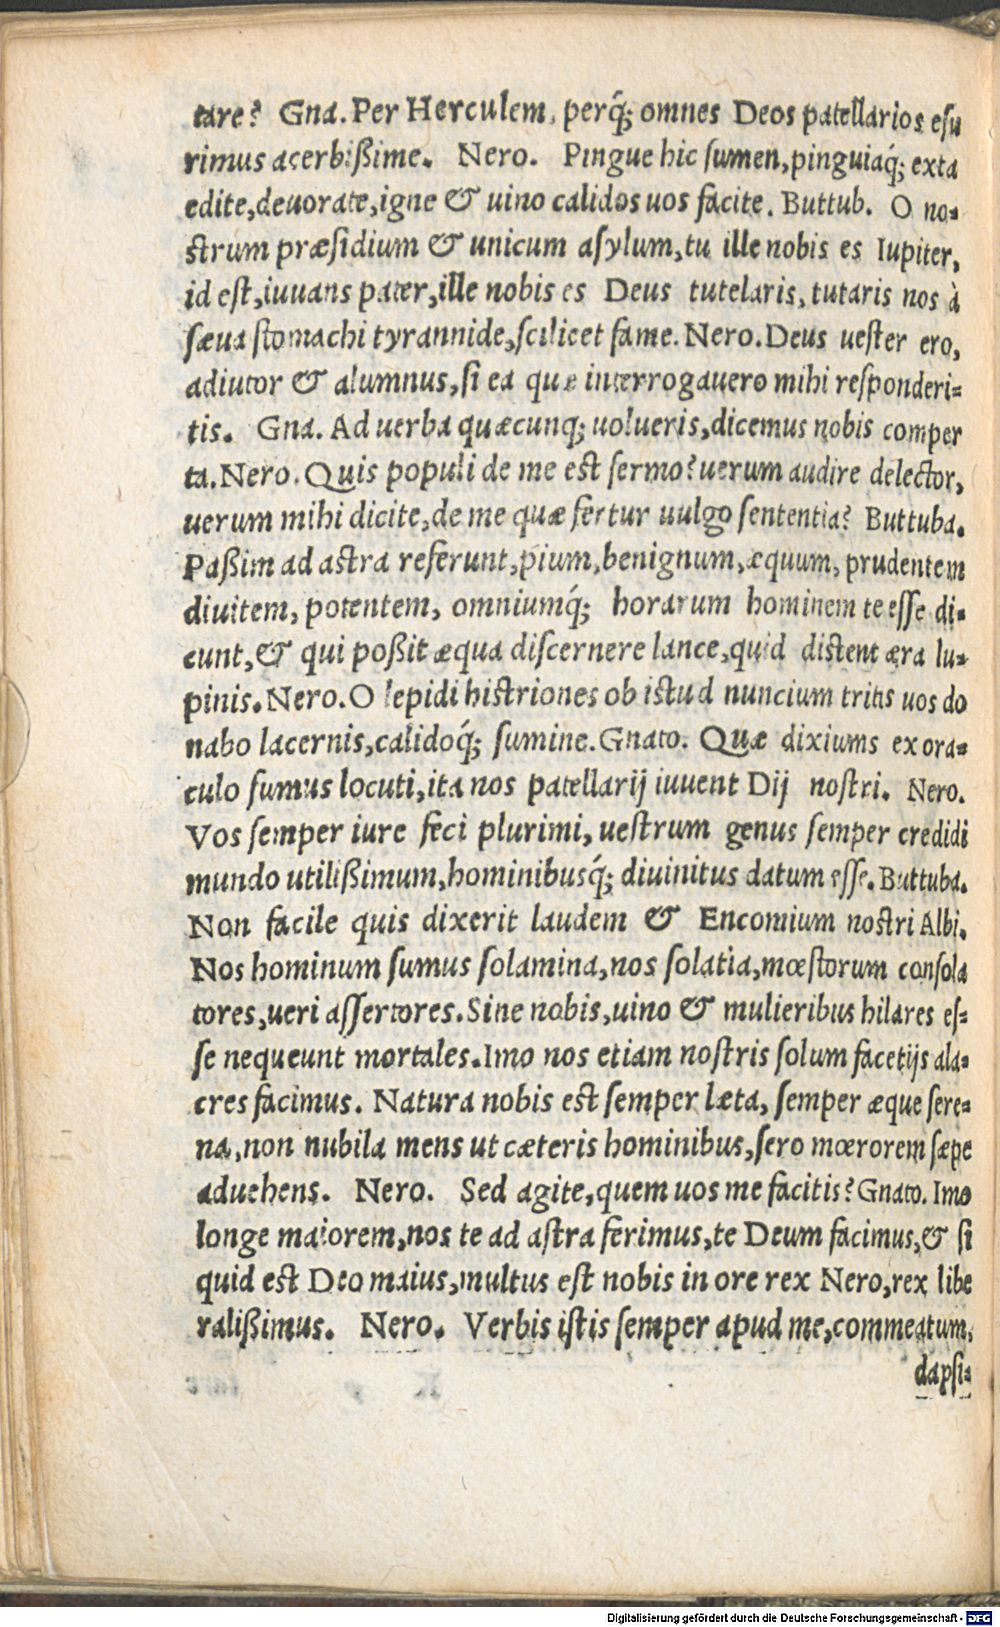 tare? Gna. Per Herculem, perq́; omnes Deos patellarios esu
rimus acerbißime. Nero. Pingue hic sumen, pinguiaq́; exta
edite, deuorate, igne & uino calidos uos facite. Buttub. O no=
strum præsidium & unicum asylum, tu ille nobis es Iupiter,
id est, iuuans pater, ille nobis es Deus tutelaris, tutaris nos à
sæua stomachi tyrannide, scilicet fame. Nero. Deus uester ero,
adiutor & alumnus, si ea quæ interrogauero mihi responderi=
tis. Gna. Ad uerba quæcunq; uolueris, dicemus nobis comper
ta. Nero. Quis populi de me est sermo? uerum audire delector,
uerum mihi dicite, de me quæ fertur uulgo sententia? Buttuba.
Paßim ad astra referunt, pium, benignum, æquum, prudentem
diuitem, potentem, omniumq́; horarum hominem te esse di=
cunt, & qui poßit æqua discernere lance, quid distent æra lu=
pinis. Nero. O lepidi histriones ob istud nuncium tritis uos do
nabo lacernis, calidoq́; sumine. Gnato. Quæ dixiums ex ora=
culo sumus locuti, ita nos patellarij iuuent Dij nostri. Nero.
Vos semper iure feci plurimi, uestrum genus semper credidi
mundo utilißimum, hominibusq́; diuinitus datum esse. Buttuba.
Non facile quis dixerit laudem & Encomium nostri Albi.
Nos hominum sumus solamina, nos solatia, mœstorum consola
tores, ueri assertores. Sine nobis, uino & mulieribus hilares es=
se nequeunt mortales. Imo nos etiam nostris solum facetijs ala=
cres facimus. Natura nobis est semper læta, semper æque sere=
na, non nubila mens ut cæteris hominibus, sero mœrorem sæpe
aduehens. Nero. Sed agite, quem uos me facitis? Gnato. Imo
longe maiorem, nos te ad astra ferimus, te Deum facimus, & si
quid est Deo maius, multus est nobis in ore rex Nero, rex libe
ralißimus. Nero. Verbis istis semper apud me, commeatum,
dapsi=
Digitalisierung gefördert durch die Deutsche Forschungsgemeinschaft - DFG